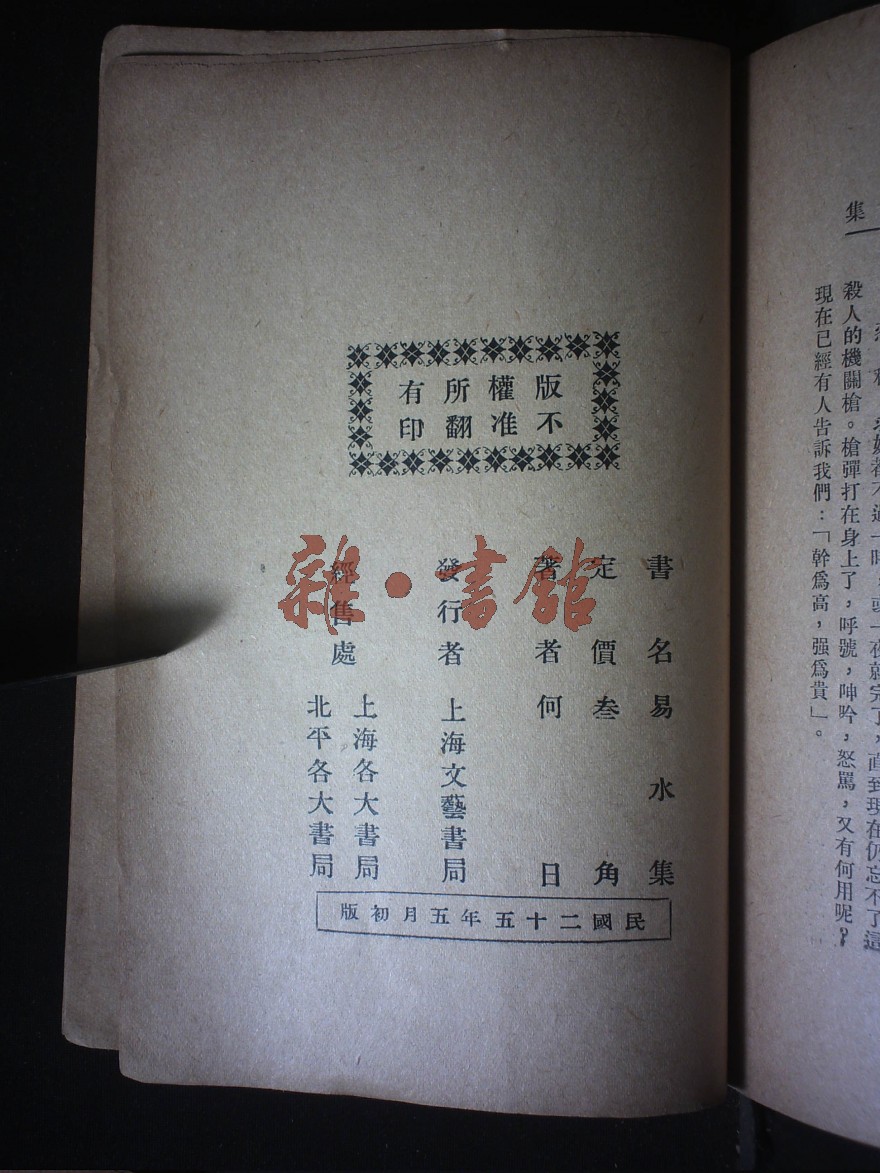 集
殺人的機關槍。槍彈打在身上了，呼號，呻吟，怒罵，又有何用呢？
現在已經有人告訴我們：「幹爲高，强爲貴」。
版權所有
不准翻印
書名 易水集
定價 叁角
著者 何日
發行者 上海文藝書局
經售處 上海各大書局
北平各大書局
民國二十五年五月初版
雜·書館